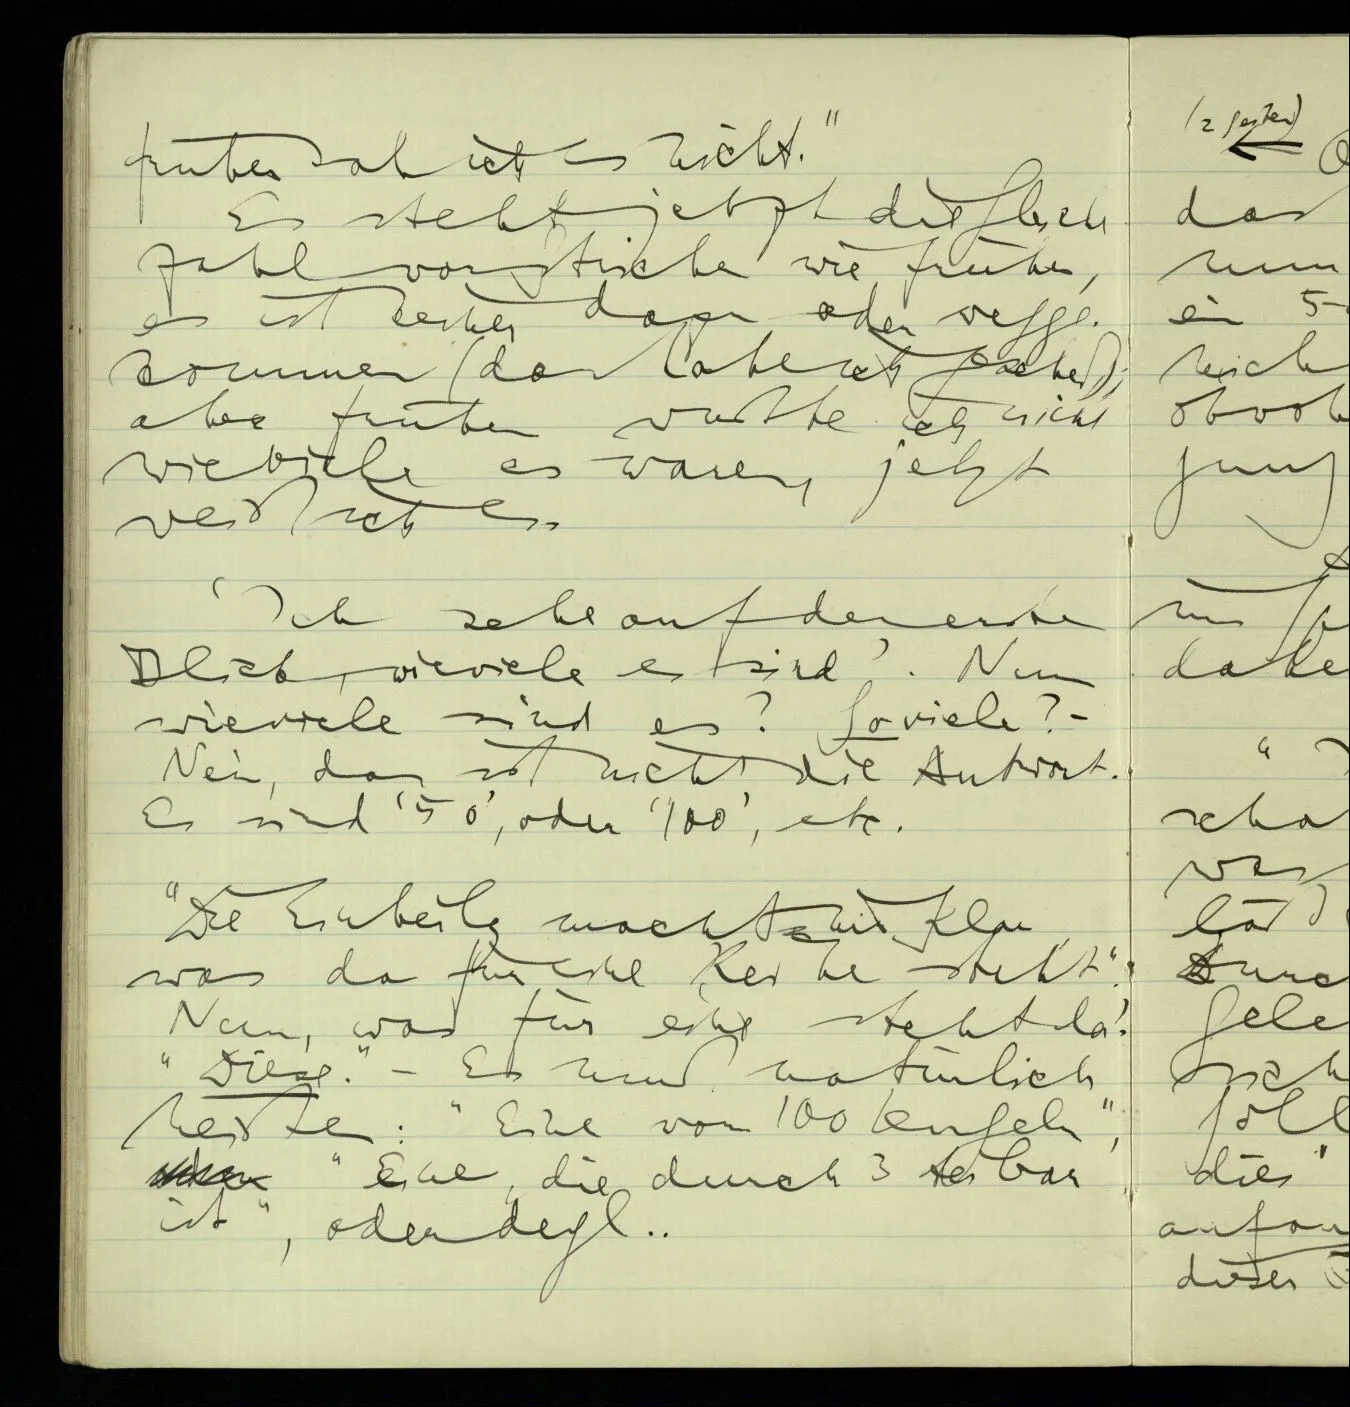 früher sah ich es nicht."
Es steht jetzt die gleiche
Zahl von Striche wie früher,
es ist keiner dazu oder wegge-
kommen (das habe ich gesehen);
aber früher wußte ich nicht
wieviele es waren, jetzt
weiß ich es.
'Ich sehe auf den ersten
Blick, wieviele es sind'. Nun
wieviele sind es? Soviele? –
Nein, das ist nicht die Antwort.
Es sind '50', oder '100', etc.
"Die Einteilg macht mir klar
was da für eine Reihe steht".
Nun, was für eine steht da?
"Diese." – Es muß natürlich
heißen: "Eine von 100 Kugeln",
"Eine, die durch 3 teilbar
ist", oder dergl..
(2 Seiten)
das
nun
ein 5
nich
obwoh
mit
dabe
"
scha
was
läß
Durc
Gele
sich
soll
dies"
anfan
dieser